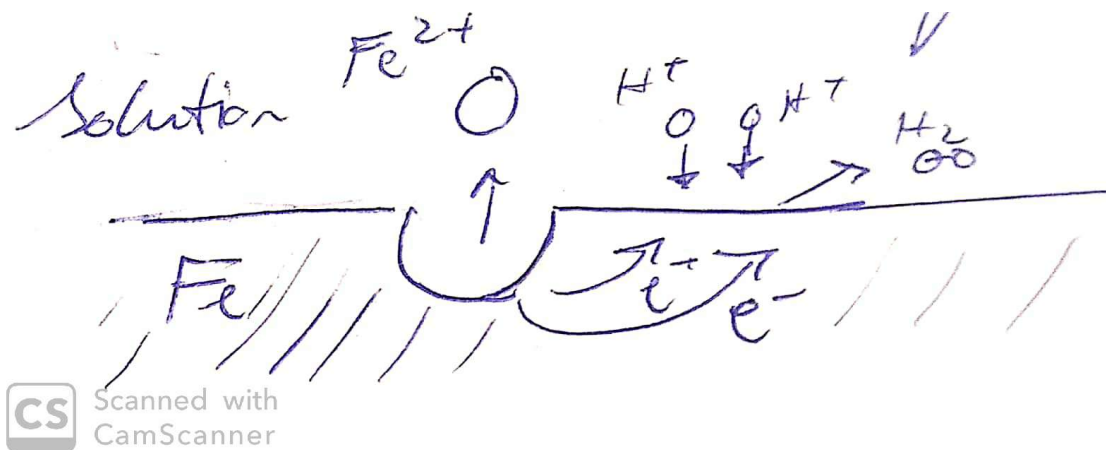 Fe2+
Solution
H+ H+
H2
Fe
e- e-
CS Scanned with
CamScanner